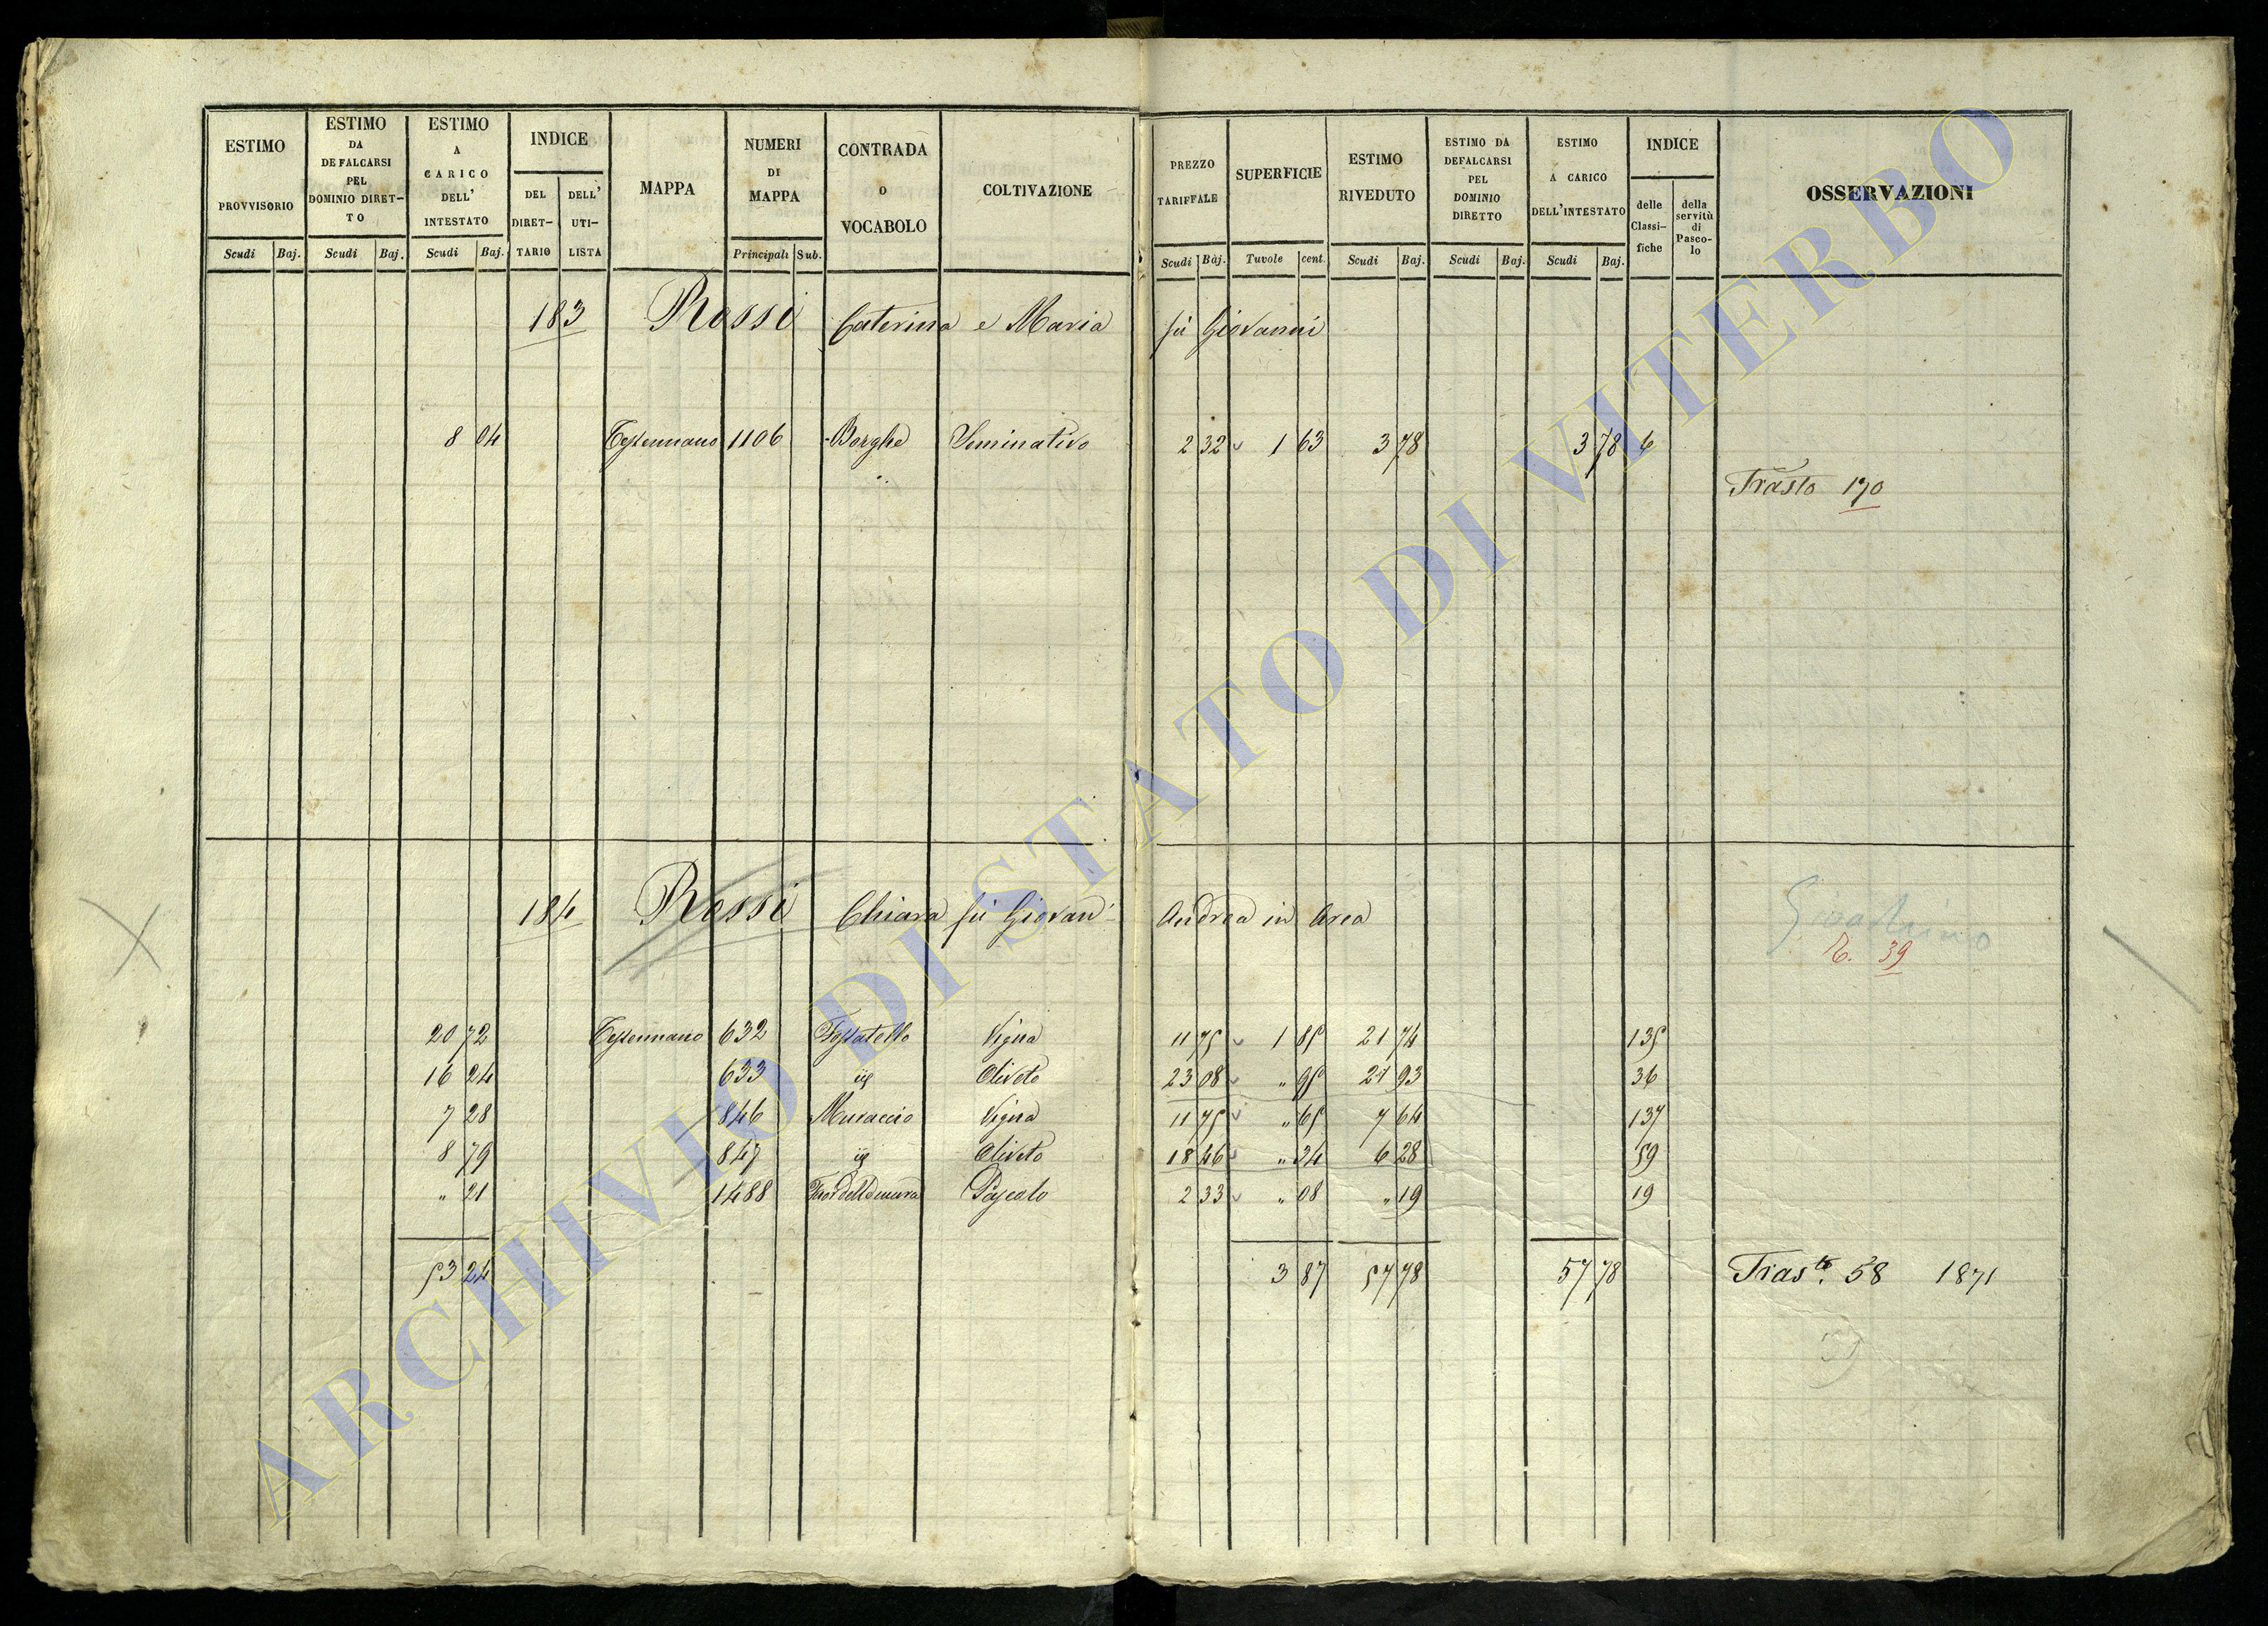 ESTIMO PROVVISORIO
ESTIMO DA DEFALCARSI PEL DOMINIO DIRETTO
ESTIMO A CARICO DELL' INTESTATO
INDICE
DEL DIRETTARIO
DELL' UTILISTA
MAPPA
NUMERI DI MAPPA
CONTRADA O VOCABOLO
COLTIVAZIONE
PREZZO TARIFFALE
SUPERFICIE
ESTIMO RIVEDUTO
ESTIMO DA DEFALCARSI PEL DOMINIO DIRETTO
ESTIMO A CARICO DELL'INTESTATO
INDICE
delle Classifiche
della servitù di Pascolo
OSSERVAZIONI
Scudi Baj. Scudi Baj. Scudi Baj. Principali Sub. Scudi Baj. Tavole cent. Scudi Baj. Scudi Baj. Scudi Baj.
183 Rossi Caterina e Maria fù Giovanni
8 04 Tessennano 1106 Borghe Seminativo 2 32 1 63 3 78 3 78 6
Trasto 170
184 Rossi Chiara fù Giovan Andrea in Area
39
20 72 Tessennano 632 Fossatello Vigna 11 75 1 85 21 74 135
16 24 633 " Oliveto 23 08 " 95 21 93 36
7 28 846 Muraccio Vigna 11 75 " 65 7 64 137
8 79 847 " Oliveto 18 46 " 34 6 28 59
" 21 1488 Pascolo 2 33 " 08 " 19 19
53 24 3 87 57 78 57 78 Trasto. 58 1871
ARCHIVIO DI STATO DI VITERBO